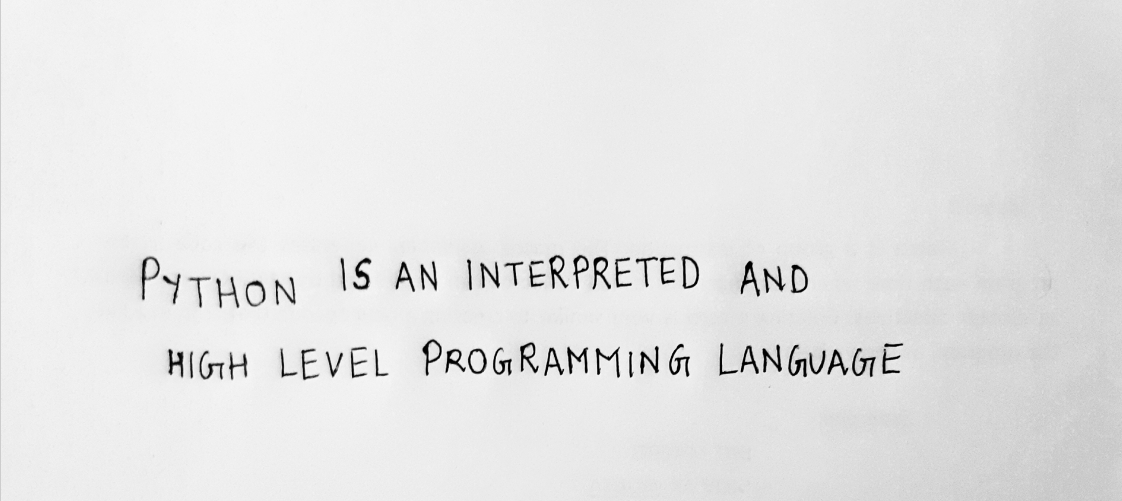 PYTHON IS AN INTERPRETED AND
HIGH LEVEL PROGRAMMING LANGUAGE